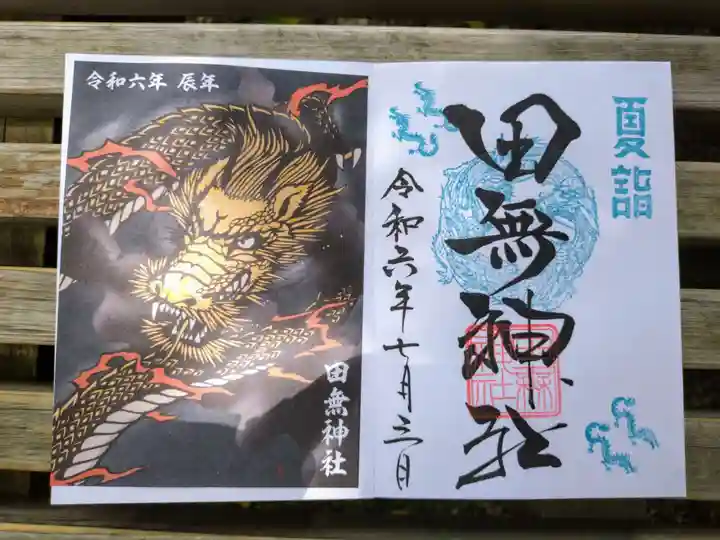 令和六年 辰年
田無神社
夏詣
田無神社
令和六年七月三日